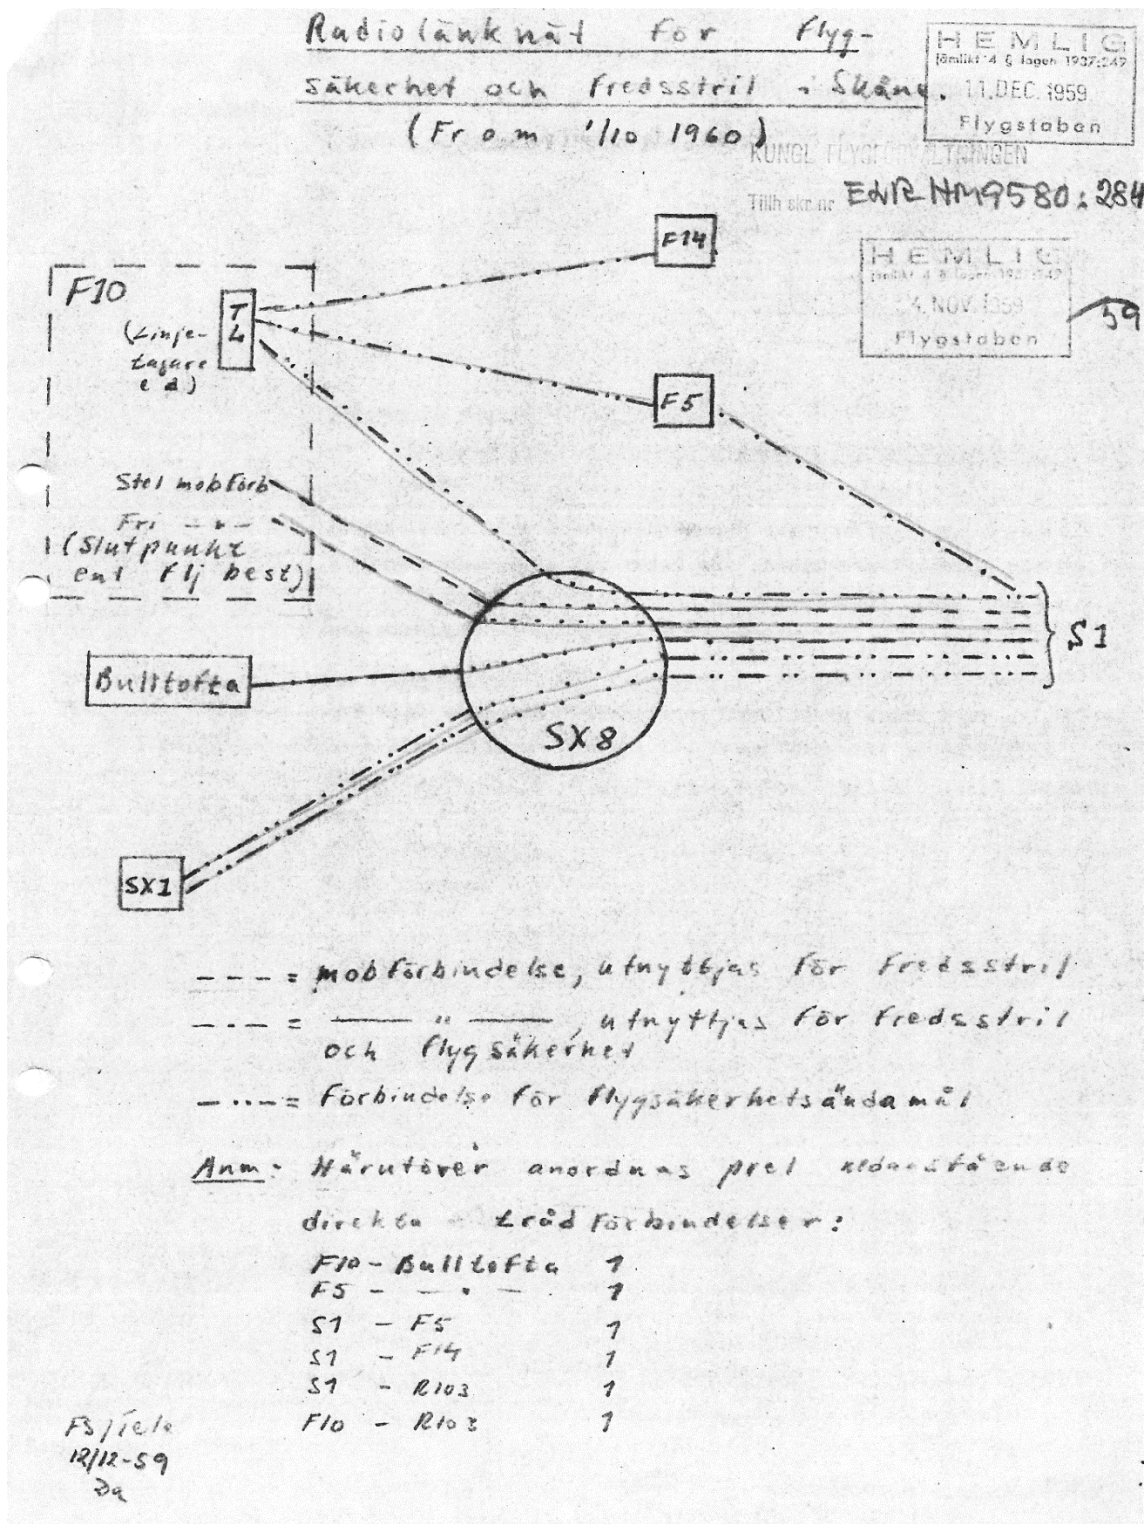 Radiolänknät för Flyg-
säkerhet och Fredsstril i Skåne.
(Fr o m 1/10 1960)
HEMLIG
jämlikt 4 § lagen 1937:249
11. DEC. 1959
Flygstaben
KUNGL FLYGFÖRVALTNINGEN
Tillh skr nr HM9580:284
HEMLIG
jämlikt 4 § lagen 1937:249
4. NOV. 1959
Flygstaben
59
F14
F10
TL
(Linje-
tagare
e d)
F5
Stel mobförb
Fri — " —
(Slutpunkt
enl Flj best)
S1
Bulltofta
SX8
SX1
--- = mobförbindelse, utnyttjas för Fredsstril
-·-- = —— " ——, utnyttjas för Fredsstril
och flygsäkerhet
-··-= Förbindelse för flygsäkerhetsändamål
Anm: Härutöver anordnas prel nedanstående
direkta trådförbindelser:
F10 - Bulltofta 1
F5 - — " — 1
S1 - F5 1
S1 - F14 1
S1 - R103 1
F10 - R103 1
FS/Tele
12/12-59
Da